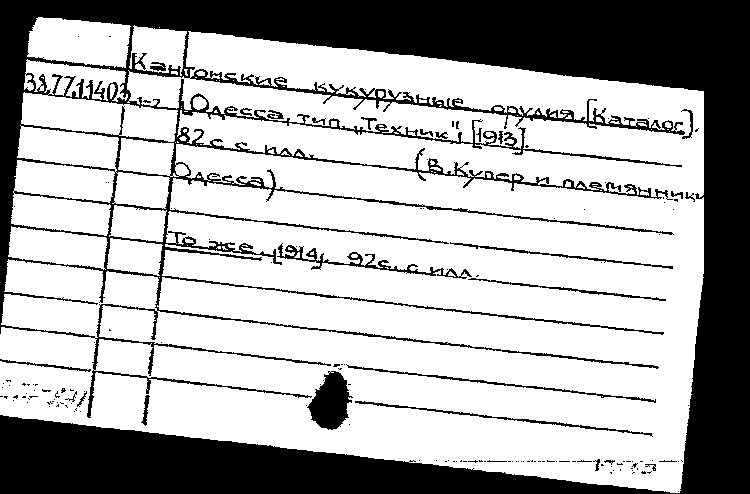 Кантонские кукурузные орудия. [Каталог].
38.77.11403 1-2 Одесса, тип. „Техник", [1913].
82с с илл. (В.Купер и племянники
Одесса).
То же. [1914]. 92с. с илл.